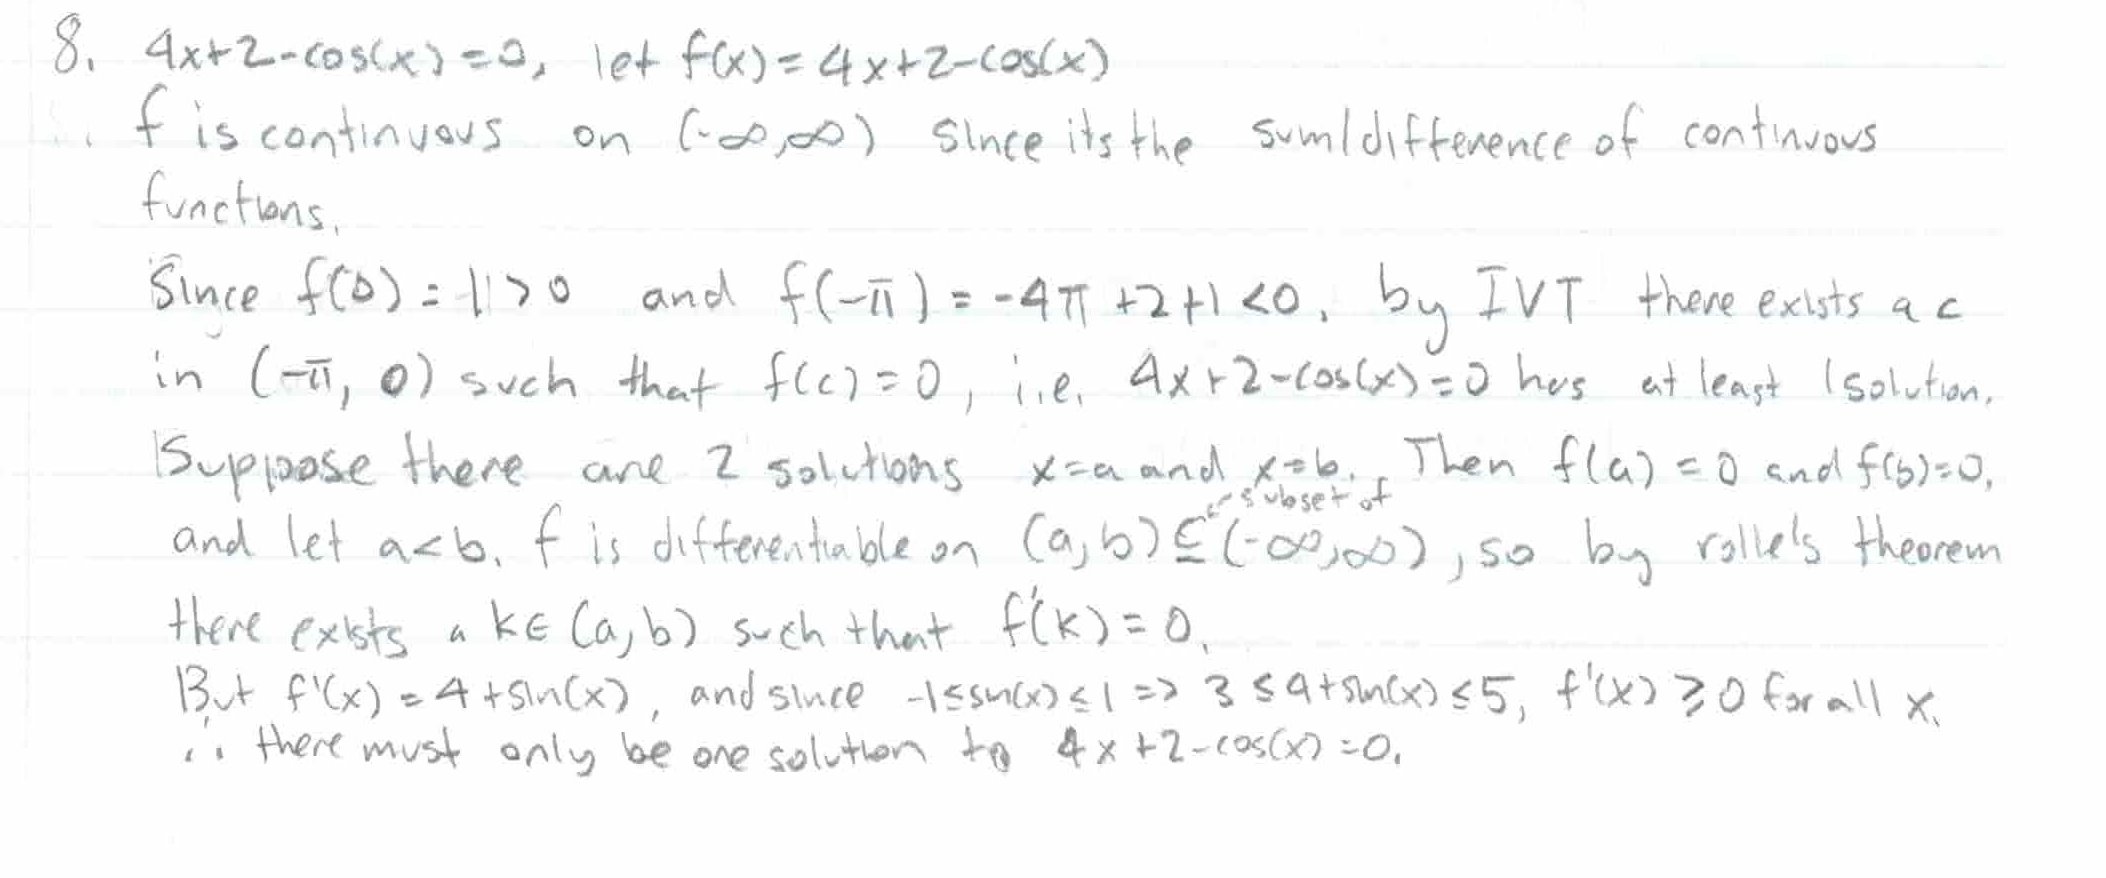 8. 4x+2-cos(x)=0, let f(x)=4x+2-cos(x)
f is continuous on (-∞,∞) since its the sum/difference of continuous
functions.
Since f(0)=1>0 and f(-π)=-4π+2+1<0, by IVT there exists a c
in (-π, 0) such that f(c)=0, i.e. 4x+2-cos(x)=0 has at least 1 solution.
Suppose there are 2 solutions x=a and x=b. Then f(a)=0 and f(b)=0,
subset of
and let a<b. f is differentiable on (a,b)⊆(-∞,∞), so by rolle's theorem
there exists a k∈(a,b) such that f'(k)=0.
But f'(x)=4+sin(x), and since -1≤sin(x)≤1 => 3≤4+sin(x)≤5, f'(x)≥0 for all x.
∴ there must only be one solution to 4x+2-cos(x)=0.